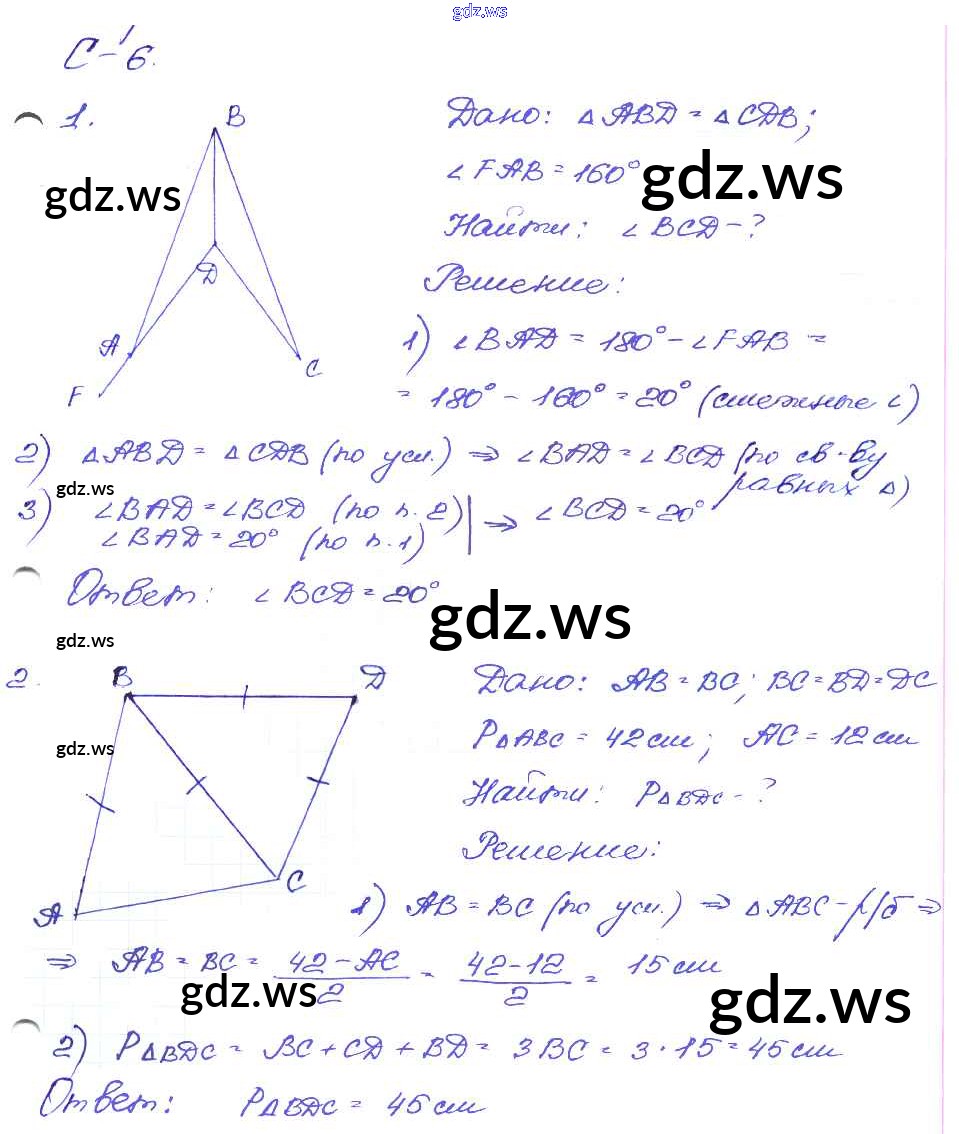 gdz.ws
С-6.
1.
B
Дано: △ABD = △CDB;
gdz.ws
∠FAB = 160°
gdz.ws
Найти: ∠BCD - ?
D
Решение:
A
C
F
1) ∠BAD = 180° - ∠FAB =
= 180° - 160° = 20° (смежные ∠)
2) △ABD = △CDB (по усл.) ⇒ ∠BAD = ∠BCD (по св-ву
равных △)
gdz.ws
3) ∠BAD = ∠BCD (по п. 2) | ⇒ ∠BCD = 20°
∠BAD = 20° (по п. 1)
Ответ: ∠BCD = 20°
gdz.ws
gdz.ws
2.
B
D
Дано: AB = BC; BC = BD = DC
P△ABC = 42 см; AC = 12 см
gdz.ws
Найти: P△BDC - ?
Решение:
C
A
1) AB = BC (по усл.) ⇒ △ABC - р/б ⇒
⇒ AB = BC = 42 - AC / 2 = 42 - 12 / 2 = 15 см
gdz.ws
gdz.ws
2) P△BDC = BC + CD + BD = 3BC = 3 · 15 = 45 см
Ответ: P△BDC = 45 см